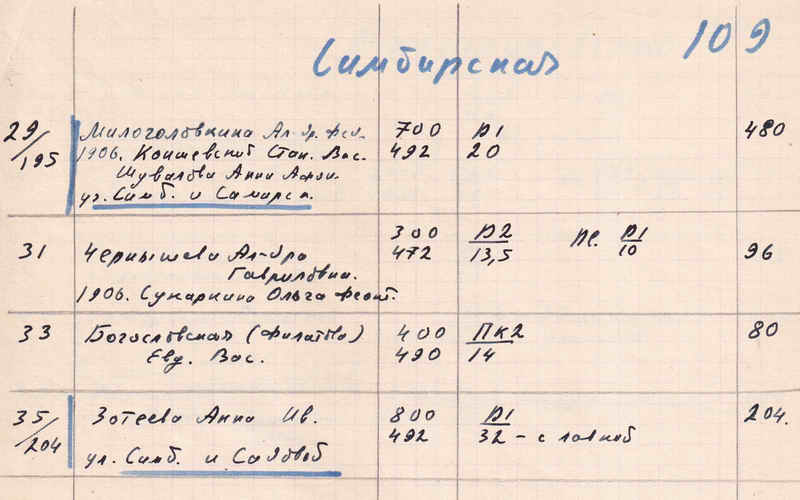 Симбирская 109
29/195 Милоголовкина Ал-др. Фед. 700 Д1 480
1906. Коишевский Стан. Вас. 492 20
Шувалова Анна Афон.
уг. Симб. и Самарск.
31 Чернышева Ал-дра 300 Д2 пс. Д1 96
Гавриловна. 472 13,5 10
1906. Сухаркина Ольга Феокт.
33 Богословская (Филатова) 400 Пк2 80
Евд. Вас. 490 14
35/204 Зотеева Анна Ив. 800 Д1 204.
492 32 - с лавкой
уг. Симб. и Садовой